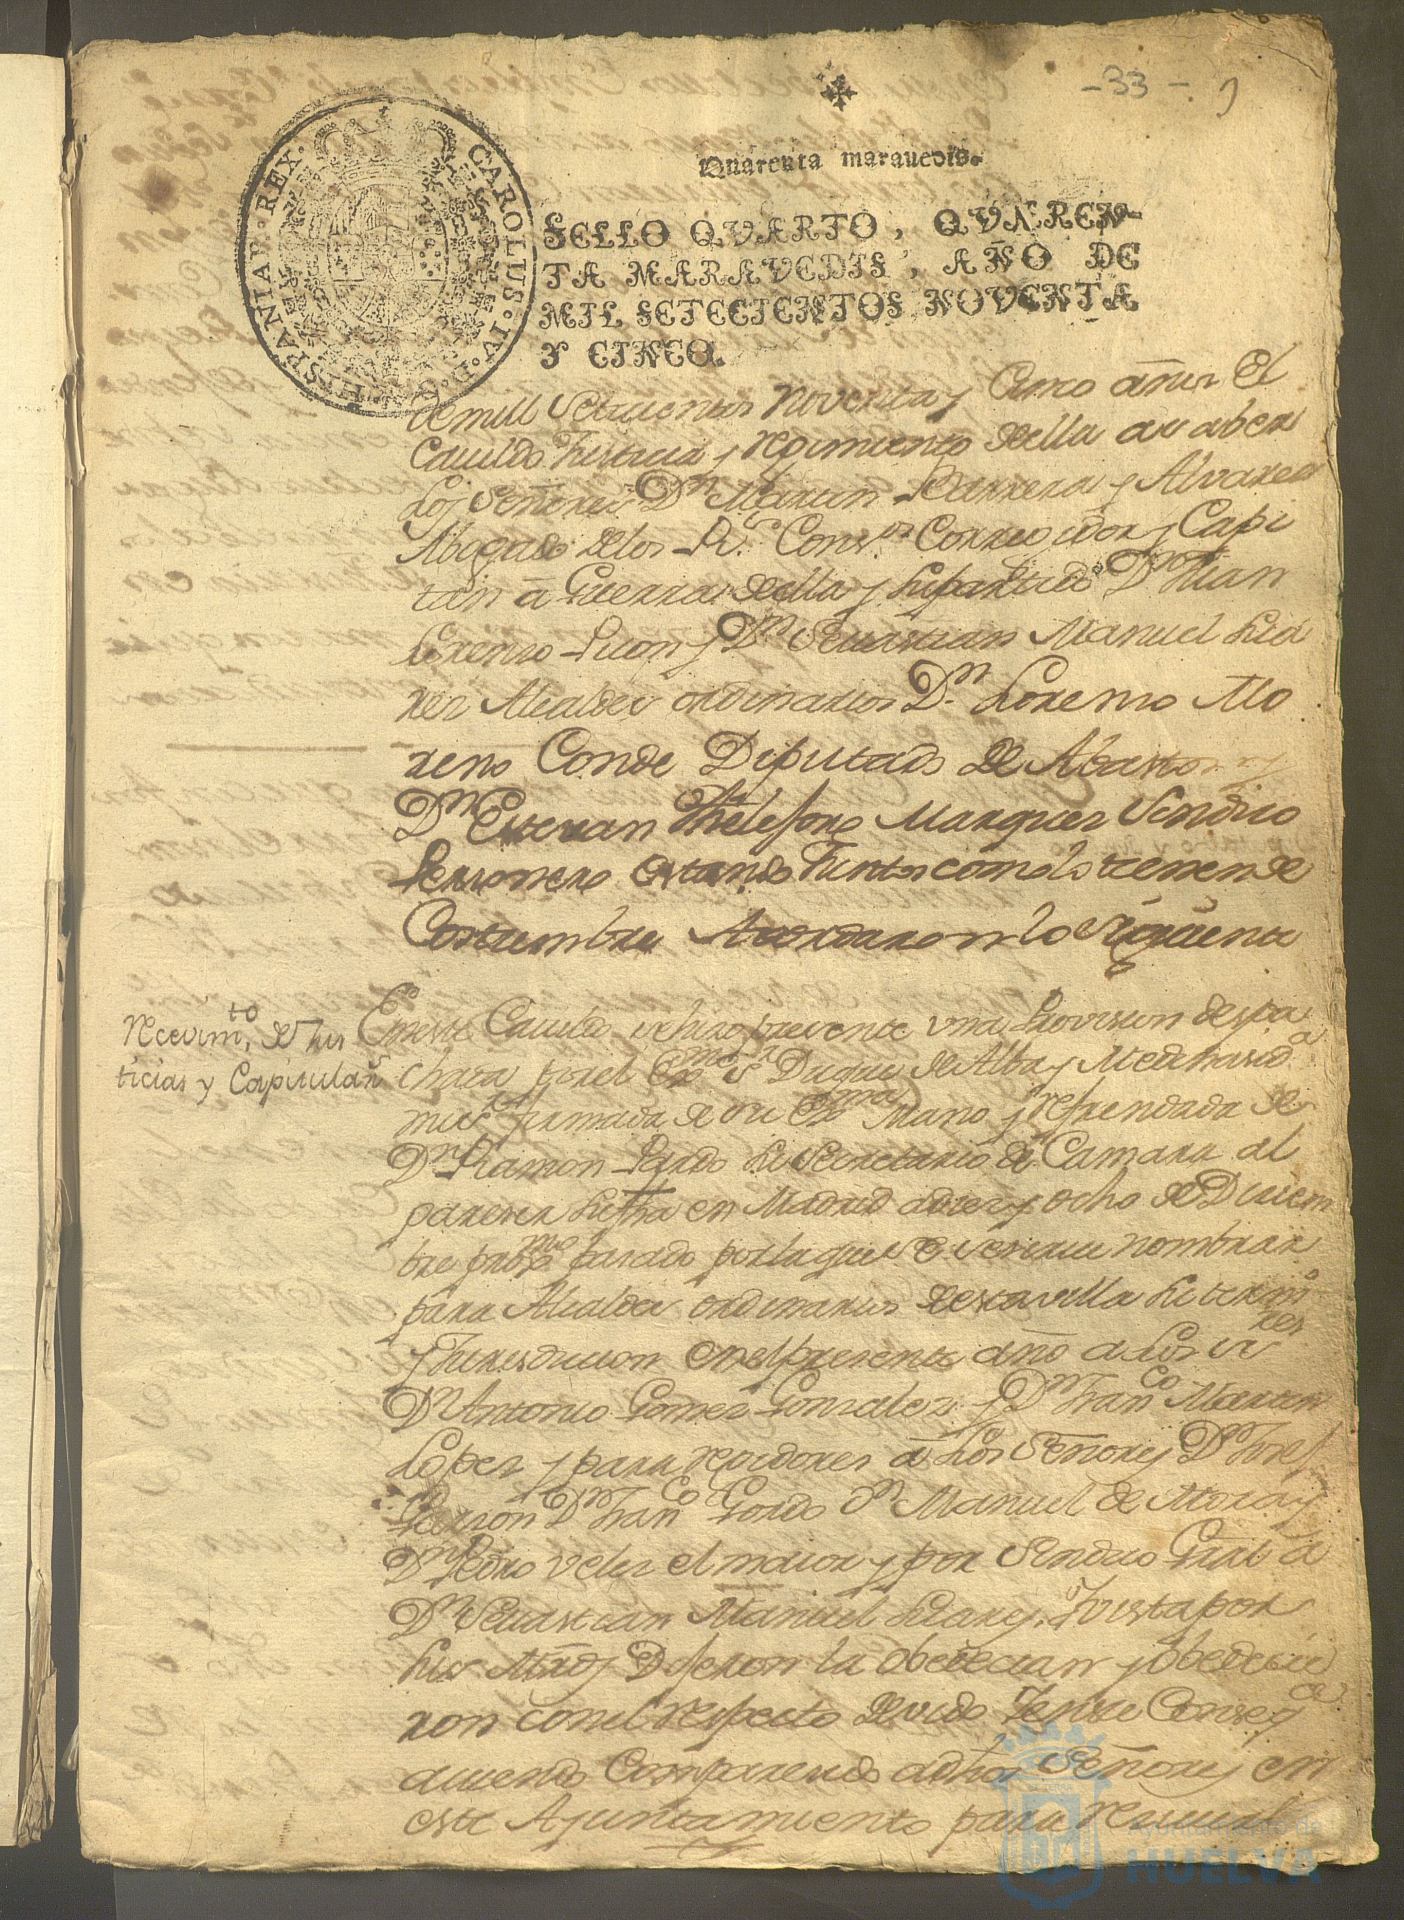 -33-
Quarenta maravedis.
CAROLUS·IV·D·G·HISPANIAR·REX·
SELLO QVARTO, QVAREN-
TA MARAVEDIS, AÑO DE
MIL SETECIENTOS NOVENTA
Y CINCO.
de mill setecientos noventa y cinco años El
Cauildo Justicia y regimiento della au aber
los Señores Dn Martin Barrera y Alvarez
Abogado de los Rs. Cons.os Corregidor y Capi
tan â Guerra della y su partido Dn Juan
Lorenzo Picon y Dn Sebastian Manuel Lia
nes Alcaldes ordinarios Dn Lorenzo Mo
reno Conde Diputado de Abastos y
Dn Estevan Thelesforo Marquez Sindico
Personero estando Juntos como lo tienen de
Costumbre Acordaron lo siguiente
Recevim.to de Jus
ticias y Capitulars
En este Cauildo se hizo presente vna Provision despa
chada por el Exmo Sr Duque de Alba y Medinasid.a
mi Sr firmada de su Exma Mano y refrendada de
Dn Ramon Pardo su Secretario de Camara al
parecer su fha en Madrid a diez y ocho de Diciem
bre proxmo pasado por la que S. E. se sirve nombrar
para Alcaldes ordinarios de esta villa su termno
y Jurisdicion en el presente año a los Sres
Dn Antonio Gomez Gonzalez y Dn Franco Martin
Lopez y para regidores â Los Señores Dn Josef
Garzon Dn Franco Gordo Dn Manuel de Mora y
Dn Pedro Velez el maior y por Sindico Gral a
Dn Sebastian Manuel Lianes. Y vista por
sus Mrds Dijeron la obedecian y obedecie
ron con el respecto devido Y en su Conseqca
aviendo Comparecido a dhos Señores en
este Ajuntamiento para
Ayuntamiento de
HUELVA